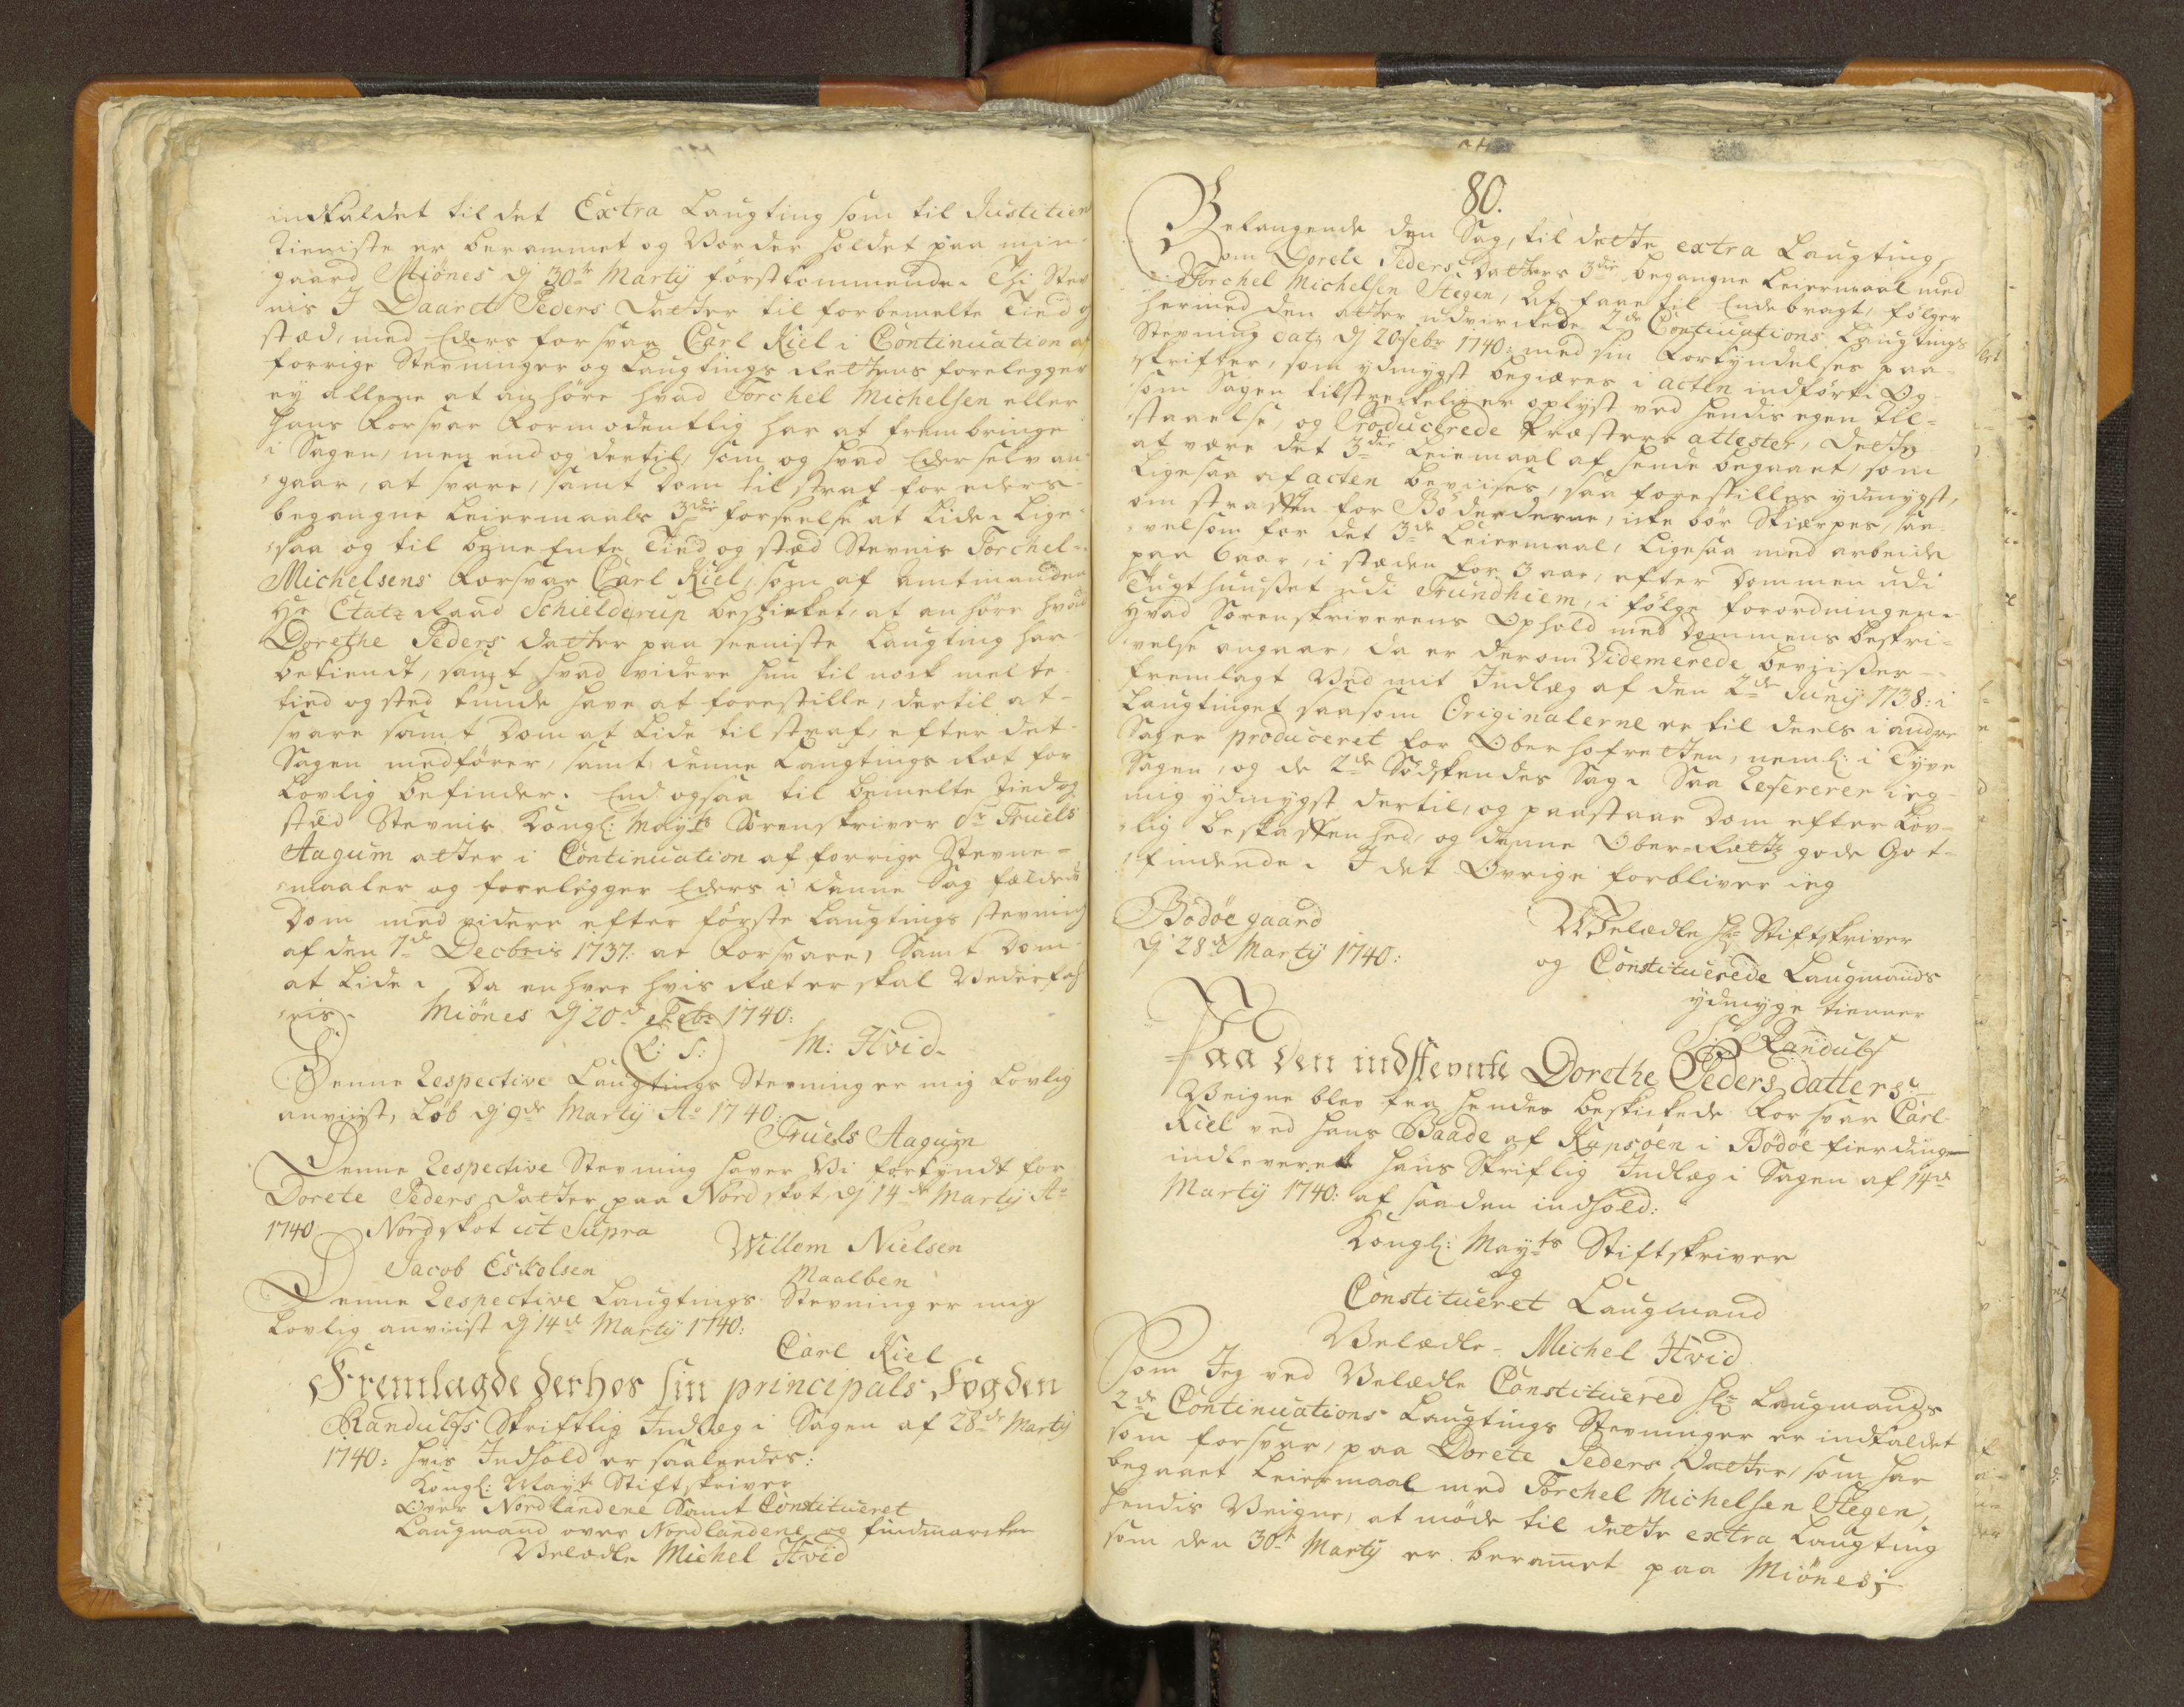 indkaldet til det Extra Laugting som til Justitiens
tieniste er berammet og Vorder holdet paa min
gaard Miönes dj 30te Martÿ förstkommende. Thi Stev
nis I Daaret Peders Datter til forbemelte Tied og
stæd, med Eders forsvar Carl Kiel i Continuation af
forrige Stevninger og Laugtings Rettens forelegger
ej allene at anhöre hvad Torchel Michelsen eller
hans Forsvar Formodentlig har at frembringe
i Sagen, men end og dertil, som og hvad Eder selv an
gaar, at svare, samt Dom til straf for eders
begangne Leiermaals 3die forseelse at Lide. Lige
saa og til benefnte Tied og stæd Stevnis Torchel
Michelsens Forsvar Carl Kiel, som af Amtmanden
Hr Etatz Raad Schielderup beskicket, at anhöre hvad
Dorethe Peders Datter paa seeniste Laugting har
bekiendt, samt hvad videre hun til nock melte
tied og sted kunde have at forestille, dertil at
svare samt Dom at Lide til straf, efter det
Sagen medförer, samt denne Laugtings Ret for
Lovlig befinder. End ogsaa til bemelte Tied og
stæd Stevnis Kongl: Maÿts Sorenskriver Sr Truels
Aagum atter i Continuation af forrige Stevne
maaler og forelegger Eders i denne Sag fældede
Dom med videre efter förste Laugtings stevning
af den 7de Decbris 1737: at forsvare, Samt Dom
at Lide. Da enhver hvis Ret er skal Vederfah
ris. Miönes dj 20de Febr 1740:
(L: S:) M: Hvid.
Denne Respective Laugtings Stevning er mig Lovlig
anviist, Löb dj 9de Martÿ Ao 1740.
Truels Aagum
Denne Respective Stevning haver Vi forkÿndt for
Dorete Peders Datter paa Nordskot, dj 14de Martÿ Ao
1740 Nordskot ut Supra
Willom Nielsen
Jacob Eskolsen Maalben
Denne Respective Laugtings Stevning er mig
Lovlig anviist dj 14de Martÿ 1740:
Carl Kiel
Fremlagde derhos sin principals Fogden
Randulfs Skriftlig Indlæg i Sagen af 28de Martÿ
1740: hvis Indhold er saaleedes:
Kongl: Maÿts Stiftskriver
Over Nordlandene Samt Constitueret
Laugmand over Nordlandene og findmarcken
Velædle Michel Hvid
80.
Belangende den Sag, til dette extra Laugting,
om Dorete Peders Datters 3die begangne Leiermaal med
Torchel Michelsen Stegen, At faae til Ende bragt, fölger
hermed den atter udvirckede 2de Continuations Laugtings
Stevning dat: dj 20 febr 1740: med sin Forkyndelses paa
skrifter, som ÿdmÿgst begiæres i acten indfört. Og
som Sagen tilstreckelig er oplÿst ved hendis egen Til=
staaelse, og Producerede Præsters attester, dette
at være det 3die Leiermaal af hende begaaet, som
Ligesaa af acten beviises, saa forestilles ÿdmÿgst,
om straffen for Böderderne, icke bör Skiærpes, saa
velsom for det 3de Leiermaal, Ligesaa med arbeide
paa 6 aar, i stæden for 3 aar, efter Dommen udi
Tugthuusset udi Trundhiem, i fölge forordningen.
Hvad Sorenskriverens Ophold med Dommens beskri=
velse angaar, da er derom Videmerede beviisser
fremlagt Ved mit Indlæg af den 2de Junÿ 1738: i
Laugtinget saasom Originalerne er til deels i andre
Sager produceret for Oberhofretten, neml: i Tyve
Sagen, og de 2de Södskendes Sag. Saa Refererer ieg
mig ÿdmÿgst dertil, og paastaar Dom efter Lov=
lig beskaffenhed, og denne Ober Retts gode Got=
findende. I det Ovrige forbliver ieg
Bödöegaard
dj 28de Martÿ 1740:
Velædle Hr Stiftskriver
og Constituerede Laugmands
ÿdmÿge tienner
S: Randulf
Paa den indstevnte Dorethe Peders datters
Veigne blev fra hendes beskickede Forsvar Carl
Kiel ved Hans Baade af Kapsöen i Bödöe fierding
indleveret hans Skriftlig Indlæg i Sagen af 14de
Martÿ 1740: af saaden indhold:
Kongl: Maÿts Stiftskriver
og
Constitueret Laugmand
Velædle Michel Hvid
Som Jeg ved Velædle Constituered Hr Laugmands
2de Continuations Laugtings Stevninger er indkaldet
som forsvar, paa Dorete Peders Datter, som har
begaaet Leiermaal med Torchel Michelsen Stegen,
hendis Veigne, at möde til dette extra Laugting
som den 30te Martÿ er beramet paa Miönes;